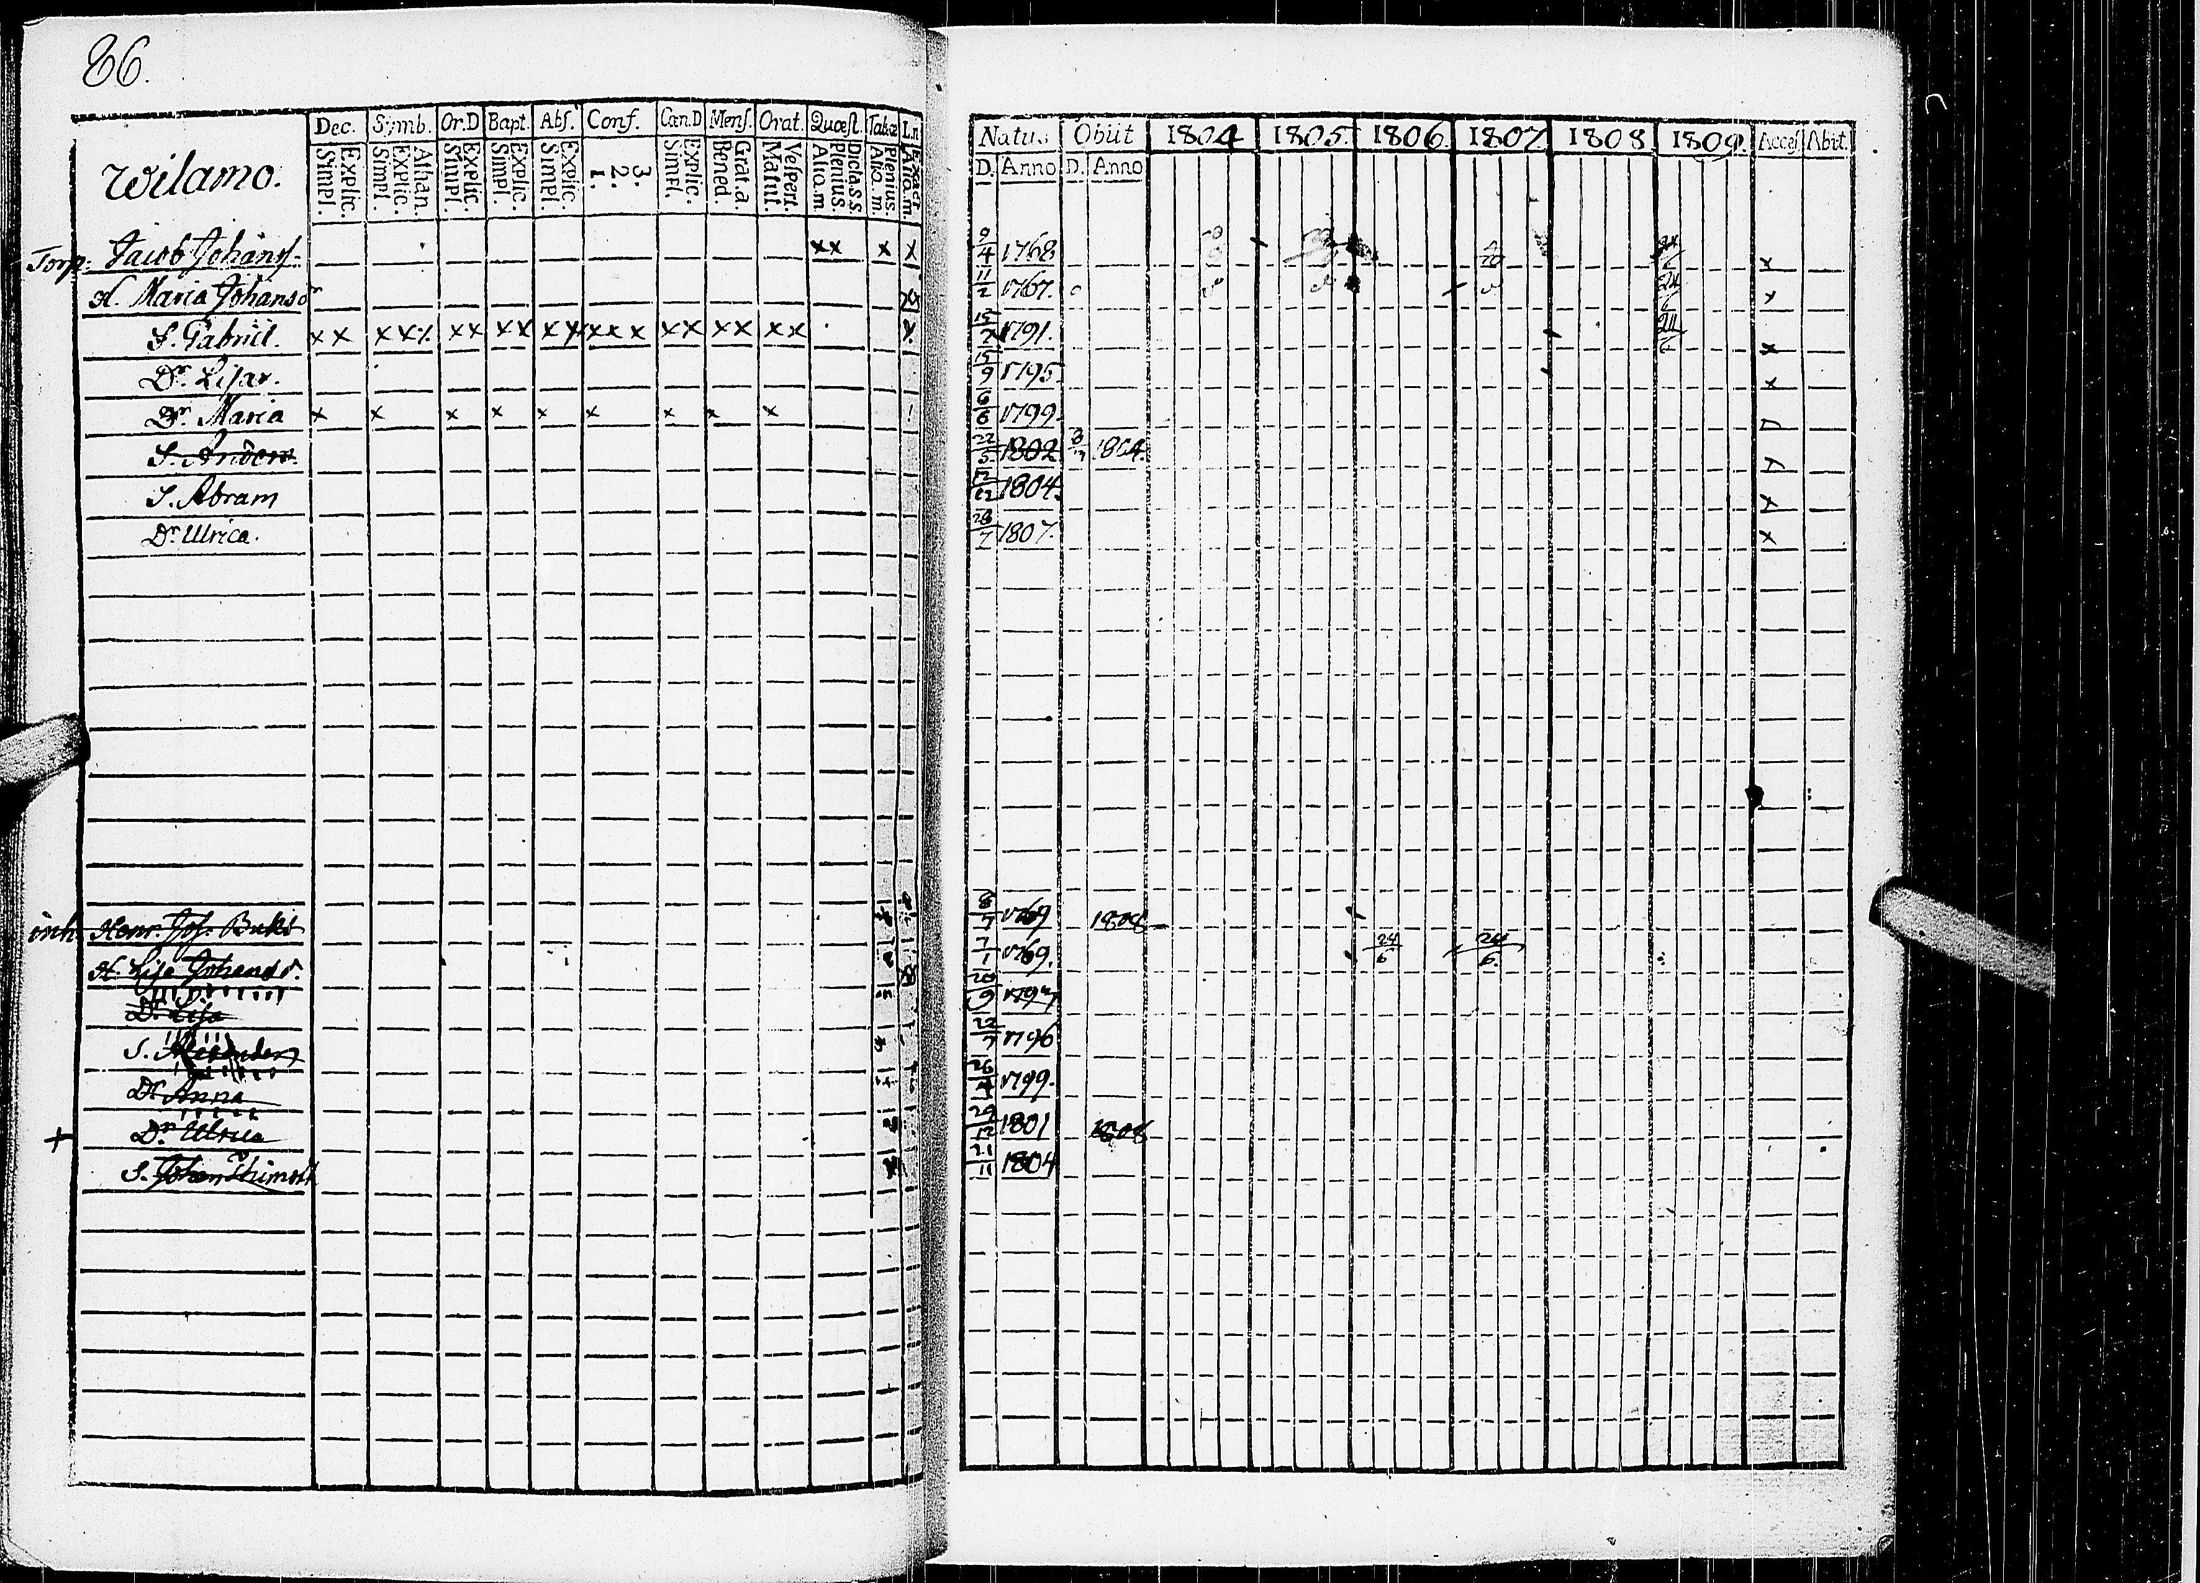 86.
Wilamo.
Dec. Symb. Or.D Bapt. Abs. Conf. Cœn.D Mens. Orat. Quæst. Tabæ L.n
Explic. Simpl.
Athan. Explic. Simpl.
Explic. Simpl.
Explic. Simpl.
Explic. Simpl.
3. 2. 1.
Explic. Simpl.
Grat.a. Bened.
Vespert. Matut.
Dicta.s.s. Plenius. Alio.m.
Plenius. Alio.m.
Exact. Alio.m.
Torp. Jacob Johanss. xx x x
H. Maria Johansdr
S. Gabriel. xx xxx xx xx xx xxx xx xx xx x
Dr. Lisa.
Dr. Maria x x x x x x x x x
S. Anders
S. Abram
Dr. Ulrica.
inh. Henr. Joh. Buki
H. Lisa Johansdr.
Dr. Lisa
S. Alexander
Dr. Anna
+ Dr. Ulrica
S. Johan
Natus Obiit 1804 1805. 1806. 1807. 1808 1809. Access. Abiit.
D. Anno D. Anno
9/4 1768 x
11/2 1767. 24/6 x
1791. x
15/9 1795. x
6/6 1799.
22/5 1802 1804.
12/12 1804. x
28/7 1807. x
8/7 1769 1808
7/1 1769. 24/6 24/6.
20/9 1794
22/7 1796
26/4 1799.
29/12 1801 1808
21/11 1804